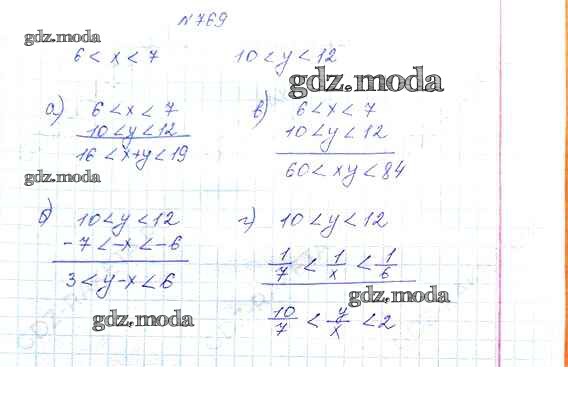 №769
gdz.moda
6 < x < 7 10 < y < 12
gdz.moda
а) 6 < x < 7
10 < y < 12
16 < x + y < 19
в) 6 < x < 7
10 < y < 12
60 < xy < 84
gdz.moda
б) 10 < y < 12
-7 < -x < -6
3 < y - x < 6
г) 10 < y < 12
1/7 < 1/x < 1/6
10/7 < y/x < 2
gdz.moda
gdz.moda